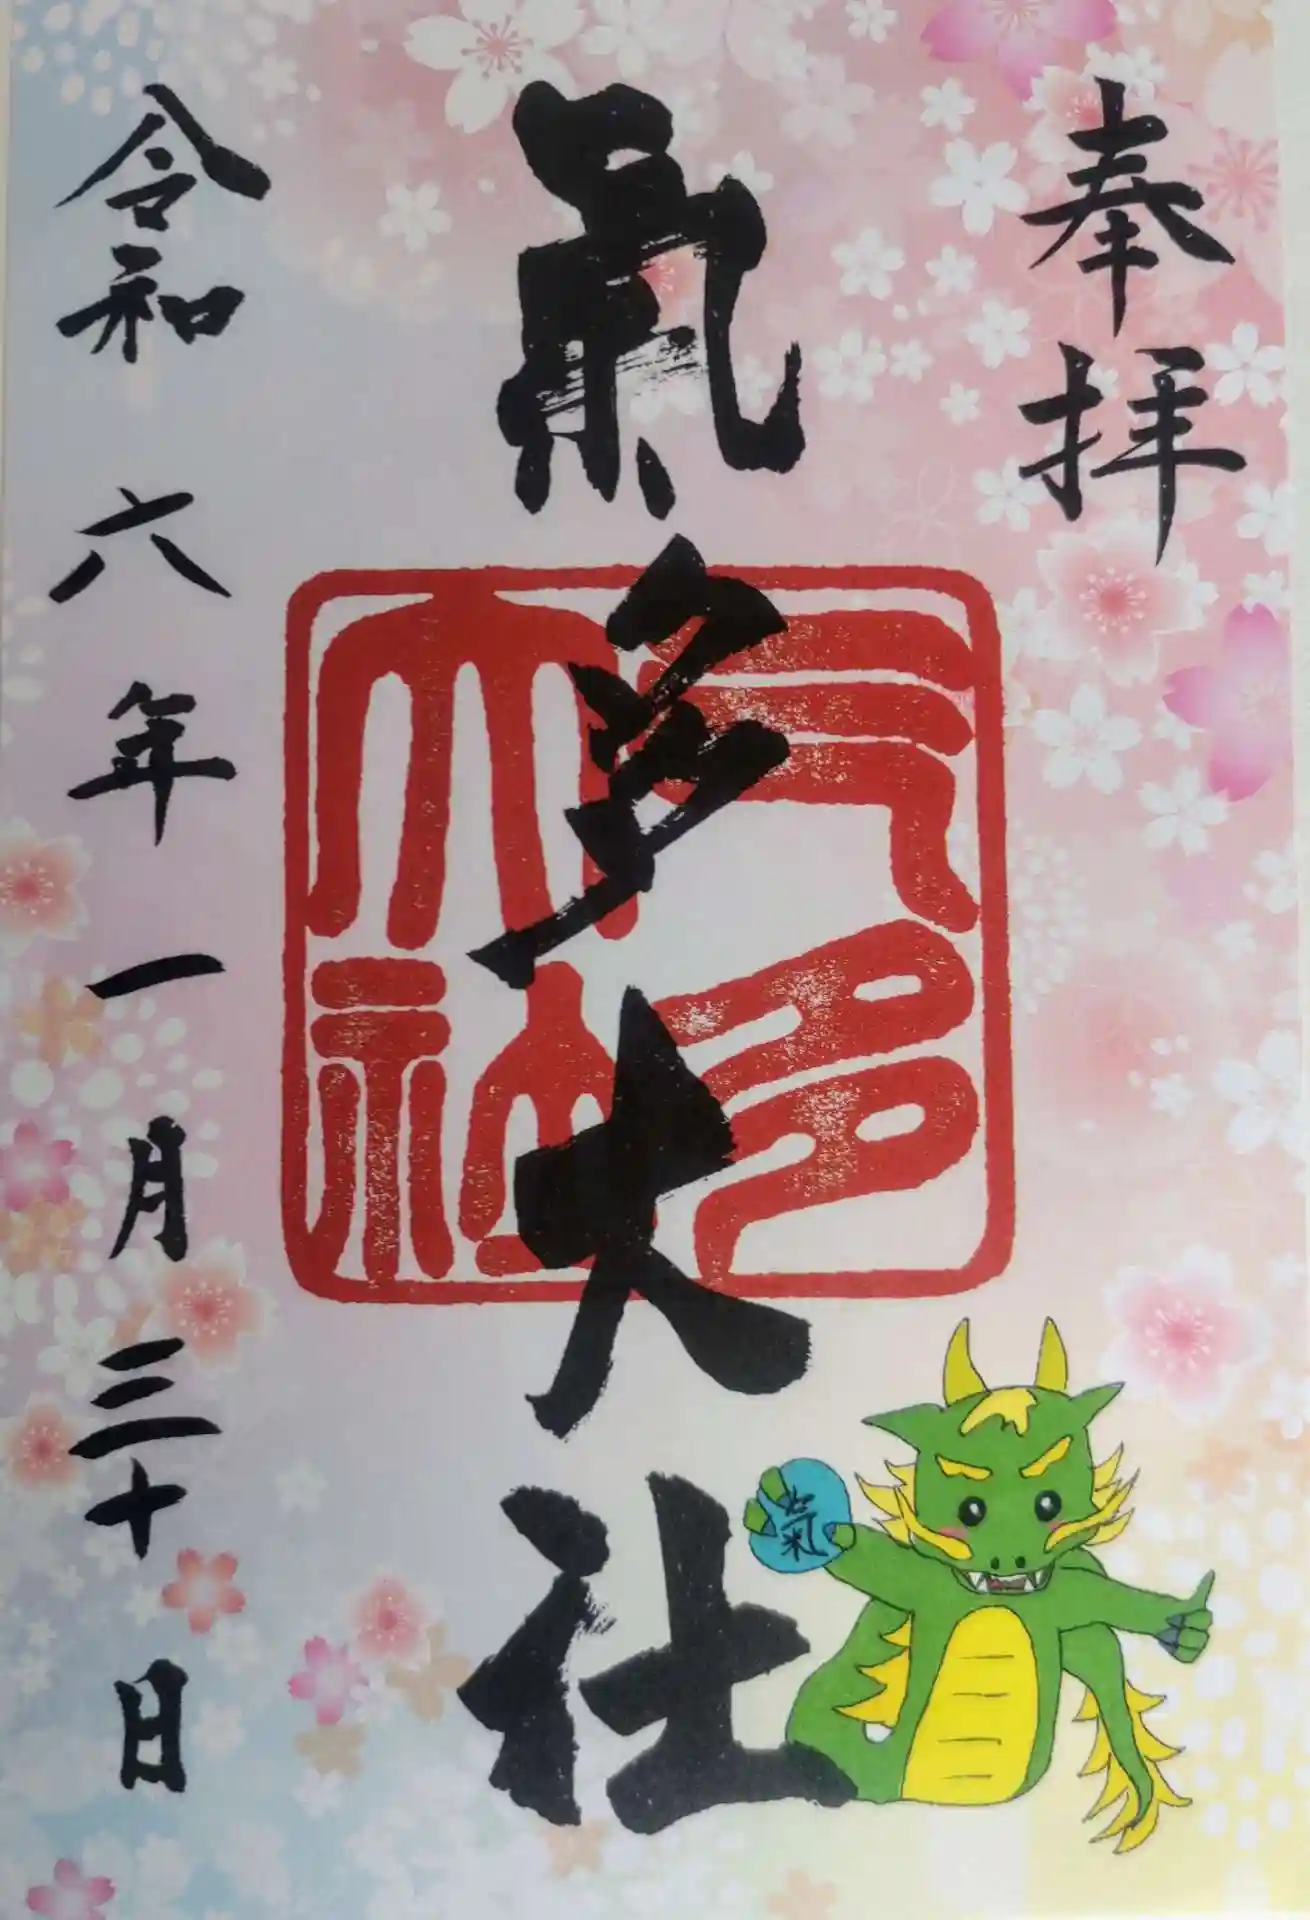 奉拝
氣多大社
気多大社
令和六年一月三十日
氣